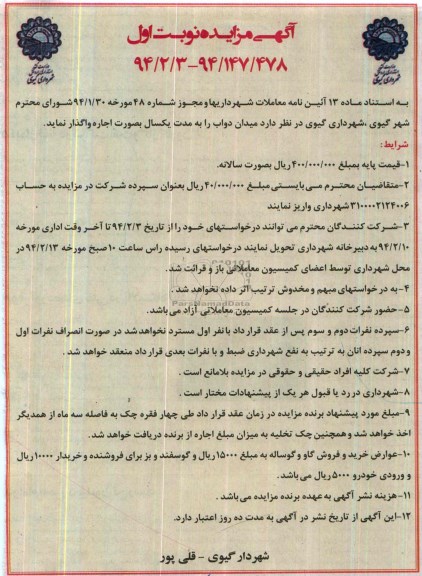 آگهی مزایده نوبت اول
۹۴/۲/۳-۹۴/۱۴۷/۴۷۸
به استناد ماده ۱۳ آئین نامه معاملات شهرداریها و مجوز شماره ۴۸ مورخه ۹۴/۱/۳۰ شورای محترم
شهر گیوی ،شهرداری گیوی در نظر دارد میدان دواب را به مدت یکسال بصورت اجاره واگذار نماید.
شرایط:
۱-قیمت پایه بمبلغ ۴۰۰/۰۰۰/۰۰۰ ریال بصورت سالانه.
۲-متقاضیان محترم می بایستی مبلغ ۴۰/۰۰۰/۰۰۰ ریال بعنوان سپرده شرکت در مزایده به حساب
۳۱۰۰۰۰۲۱۲۴۰۰۶ شهرداری واریز نمایند
۳-شرکت کنندگان محترم می توانند درخواستهای خود را از تاریخ ۹۴/۲/۳ تا آخر وقت اداری مورخه
۹۴/۲/۱۰ به دبیرخانه شهرداری تحویل نمایند درخواستهای رسیده راس ساعت ۱۰ صبح مورخه ۹۴/۲/۱۳ در
محل شهرداری توسط اعضای کمیسیون معاملاتی باز و قرائت شد .
۴-به درخواستهای مبهم و مخدوش ترتیب اثر داده نخواهد شد .
ParsNamadData
۵-حضور شرکت کنندگان در جلسه کمیسیون معاملاتی آزاد می باشد.
۶-سپرده نفرات دوم و سوم پس از عقد قرار داد با نفر اول مسترد نخواهد شد در صورت انصراف نفرات اول
و دوم سپرده انان به ترتیب به نفع شهرداری ضبط و با نفرات بعدی قرار داد منعقد خواهد شد .
۷-شرکت کلیه افراد حقیقی و حقوقی در مزایده بلامانع است .
۸-شهرداری در رد یا قبول هر یک از پیشنهادات مختار است .
۹-مبلغ مورد پیشنهاد برنده مزایده در زمان عقد قرار داد طی چهار فقره چک به فاصله سه ماه از همدیگر
اخذ خواهد شد و همچنین چک تخلیه به میزان مبلغ اجاره از برنده دریافت خواهد شد.
۱۰-عوارض خرید و فروش گاو و گوساله به مبلغ ۱۵۰۰۰ ریال و گوسفند و بز برای فروشنده و خریدار ۱۰۰۰۰ ریال
و ورودی خودرو ۵۰۰۰ ریال می باشد .
۱۱-هزینه نشر آگهی به عهده برنده مزایده می باشد .
۱۲-این آگهی از تاریخ نشر در آگهی به مدت ده روز اعتبار دارد.
شهردار گیوی - قلی پور